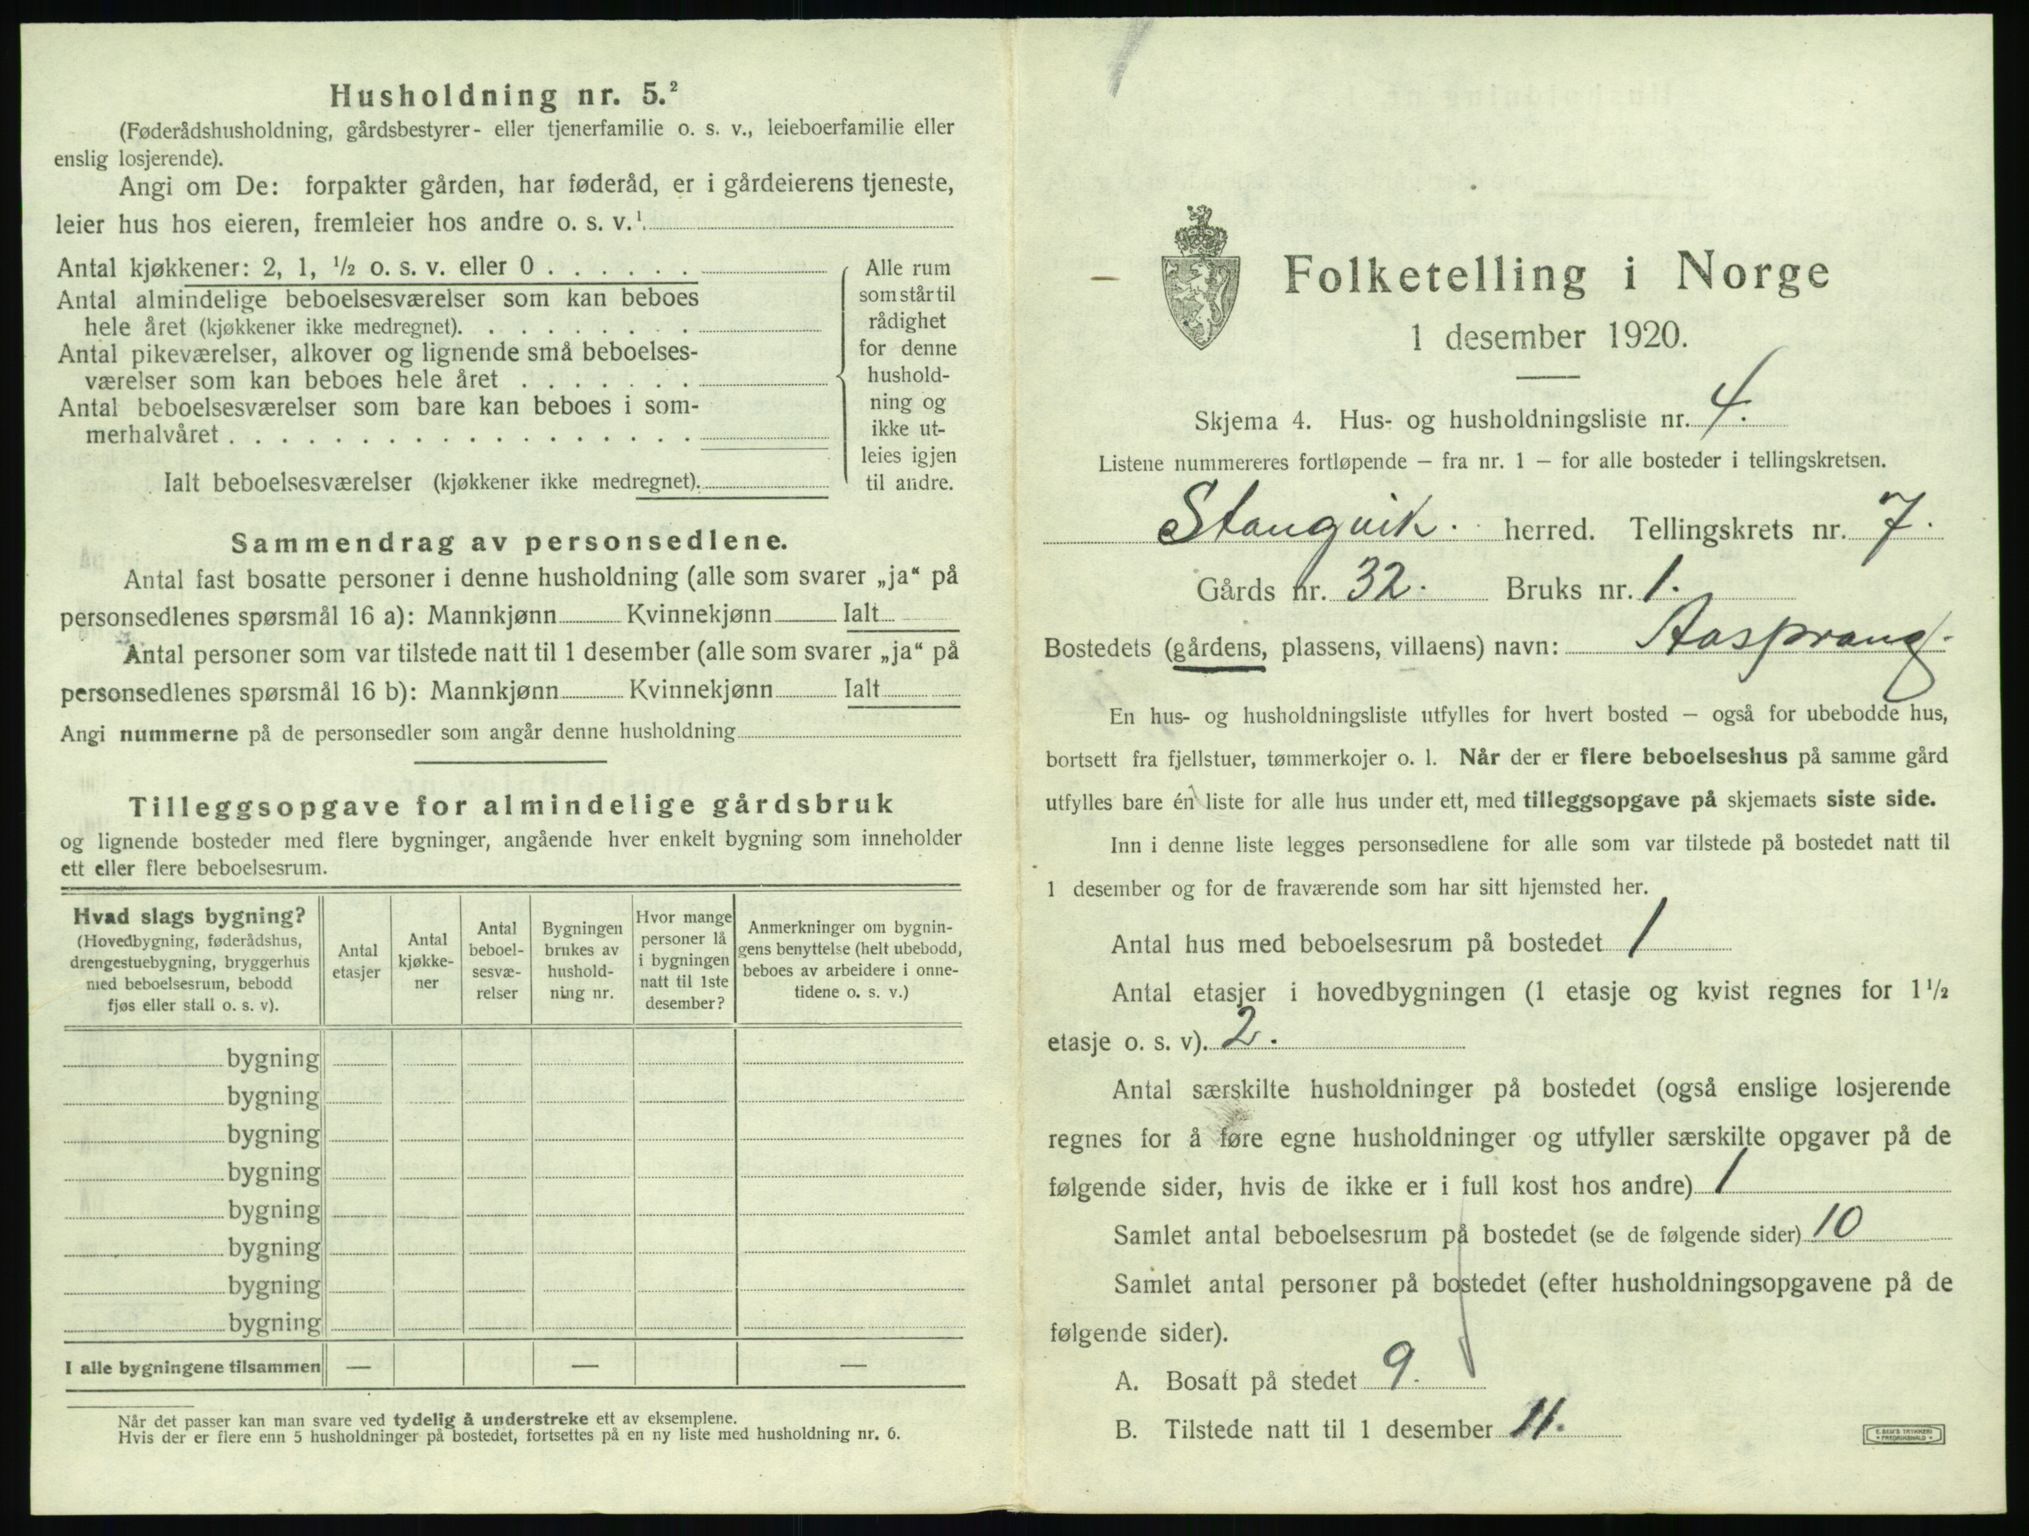 Husholdning nr. 5.²
(Føderådshusholdning, gårdsbestyrer- eller tjenerfamilie o. s. v., leieboerfamilie eller
enslig losjerende).
Angi om De: forpakter gården, har føderåd, er i gårdeierens tjeneste,
leier hus hos eieren, fremleier hos andre o. s. v.¹
Antal kjøkkener: 2, 1, ½ o. s. v. eller 0 . . . . . .
Antal almindelige beboelsesværelser som kan beboes
hele året (kjøkkener ikke medregnet). . . . . . . . .
Antal pikeværelser, alkover og lignende små beboelses-
værelser som kan beboes hele året . . . . . . .
Antal beboelsesværelser som bare kan beboes i som-
merhalvåret . . . . . . . . . . . . . . . . . .
Ialt beboelsesværelser (kjøkkener ikke medregnet).
Alle rum
som står til
rådighet
for denne
hushold-
ning og
ikke ut-
leies igjen
til andre.
Sammendrag av personsedlene.
Antal fast bosatte personer i denne husholdning (alle som svarer „ja“ på
personsedlenes spørsmål 16 a): Mannkjønn Kvinnekjønn Ialt
Antal personer som var tilstede natt til 1 desember (alle som svarer „ja“ på
personsedlenes spørsmål 16 b): Mannkjønn Kvinnekjønn Ialt
Angi nummerne på de personsedler som angår denne husholdning
Tilleggsopgave for almindelige gårdsbruk
og lignende bosteder med flere bygninger, angående hver enkelt bygning som inneholder
ett eller flere beboelsesrum.
Hvad slags bygning?
(Hovedbygning, føderådshus,
drengestuebygning, bryggerhus
med beboelsesrum, bebodd
fjøs eller stall o. s. v).
Antal
etasjer
Antal
kjøkke-
ner
Antal
beboel-
sesvæ-
relser
Bygningen
brukes av
hushold-
ning nr.
Hvor mange
personer lå
i bygningen
natt til 1ste
desember?
Anmerkninger om bygnin-
gens benyttelse (helt ubebodd,
beboes av arbeidere i onne-
tidene o. s. v.)
bygning
bygning
bygning
bygning
bygning
bygning
bygning
bygning
I alle bygningene tilsammen — — —
Når det passer kan man svare ved tydelig å understreke ett av eksemplene.
Hvis der er flere enn 5 husholdninger på bostedet, fortsettes på en ny liste med husholdning nr. 6.
Folketelling i Norge
1 desember 1920.
Skjema 4. Hus- og husholdningsliste nr. 4.
Listene nummereres fortløpende – fra nr. 1 – for alle bosteder i tellingskretsen.
Stangvik. herred. Tellingskrets nr. 7.
Gårds nr. 32. Bruks nr. 1.
Bostedets (gårdens, plassens, villaens) navn: Aasprang.
En hus- og husholdningsliste utfylles for hvert bosted – også for ubebodde hus,
bortsett fra fjellstuer, tømmerkojer o. l. Når der er flere beboelseshus på samme gård
utfylles bare én liste for alle hus under ett, med tilleggsopgave på skjemaets siste side.
Inn i denne liste legges personsedlene for alle som var tilstede på bostedet natt til
1 desember og for de fraværende som har sitt hjemsted her.
Antal hus med beboelsesrum på bostedet 1
Antal etasjer i hovedbygningen (1 etasje og kvist regnes for 1½
etasje o. s. v). 2.
Antal særskilte husholdninger på bostedet (også enslige losjerende
regnes for å føre egne husholdninger og utfyller særskilte opgaver på de
følgende sider, hvis de ikke er i full kost hos andre) 1
Samlet antal beboelsesrum på bostedet (se de følgende sider) 10
Samlet antal personer på bostedet (efter husholdningsopgavene på de
følgende sider).
A. Bosatt på stedet 9.
B. Tilstede natt til 1 desember 11.
E. SEM'S TRYKKERI
FREDRIKSHALD